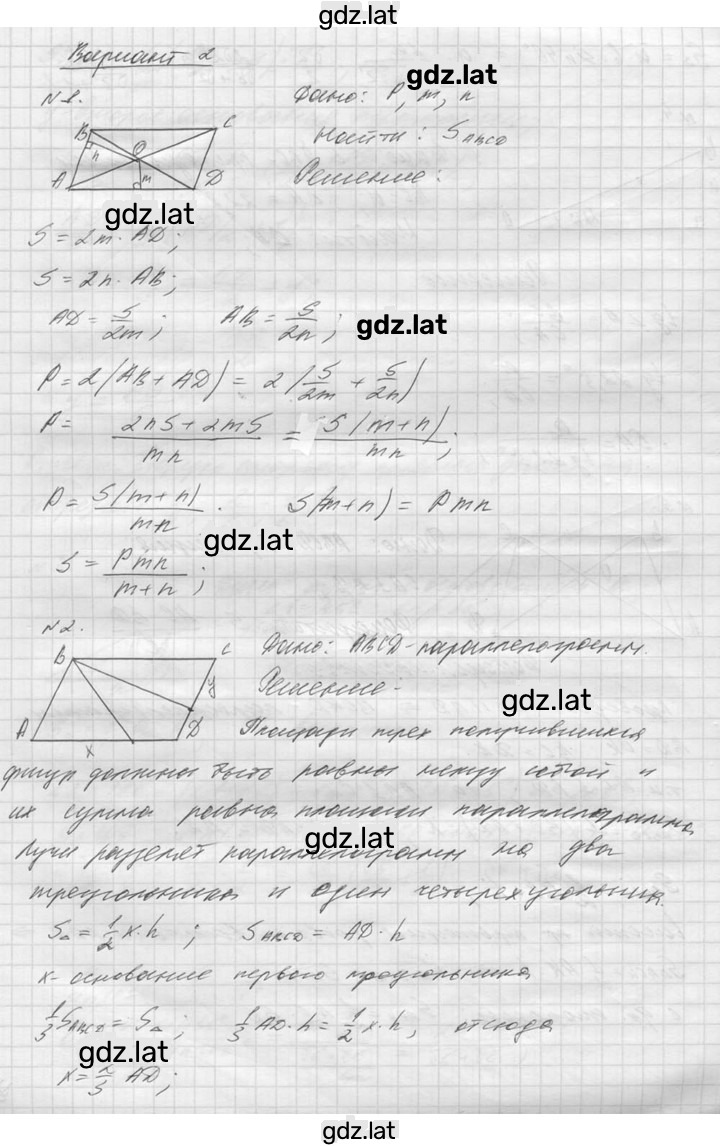 gdz.lat
Вариант 2
gdz.lat
N 1.
Дано: P, m, n
B C
Найти: S ABCD
n O m
A D
Решение:
gdz.lat
S = 2m · AD;
S = 2n · AB;
AD = S/2m; AB = S/2n;
gdz.lat
P = 2(AB + AD) = 2(S/2m + S/2n)
P = 2nS + 2mS/mn = S(m+n)/mn;
P = S(m+n)/m+n. S(m+n) = Pmn
gdz.lat
S = Pmn/m+n;
N 2.
B C
Дано: ABCD - параллелограмм.
y
Решение -
gdz.lat
A x D
Площади трех получившихся
фигур должны быть равны между собой и
их сумма равна площади параллелограмма
gdz.lat
Лучи разделят параллелограмм на два
треугольника и один четырехугольник.
S△ = 1/2 x · h; S ABCD = AD · h
x - основание первого треугольника
1/3 S ABCD = S△; 1/3 AD · h = 1/2 x · h, отсюда
gdz.lat
x = 2/3 AD;
gdz.lat